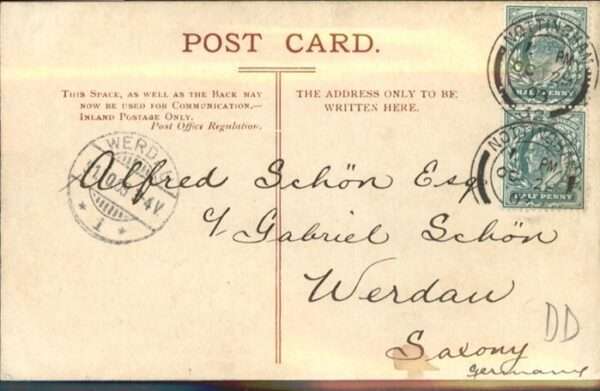 POST CARD.
THIS SPACE, AS WELL AS THE BACK MAY
NOW BE USED FOR COMMUNICATION.—
INLAND POSTAGE ONLY.
Post Office Regulation.
THE ADDRESS ONLY TO BE
WRITTEN HERE.
NOTTINGHAM
PM
OC
HALF PENNY
NOTTINGHAM
PM
OC
HALF PENNY
WERDAU
* 1 *
Alfred Schön Esq
c/ Gabriel Schön
Werdau
Saxony
Germany
DD